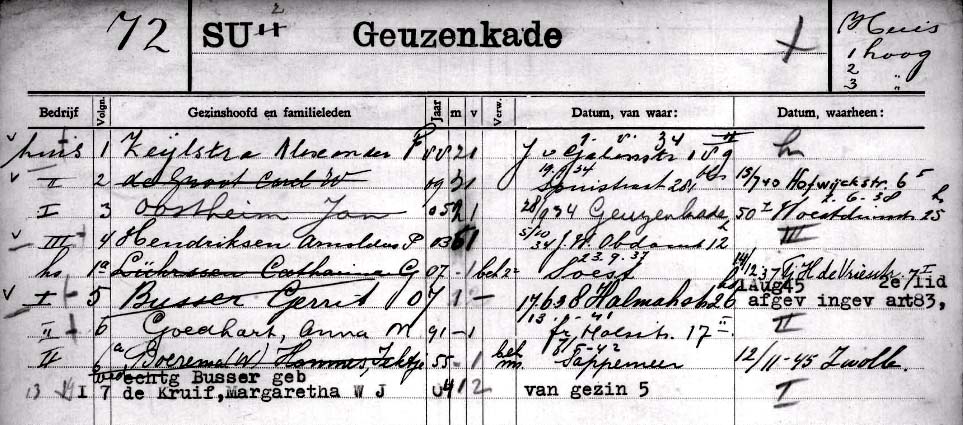 72 SU II 2 Geuzenkade
Huis
1 hoog
2 "
3 "
Bedrijf Volgn. Gezinshoofd en familieleden Jaar m v Verw. Datum, van waar: Datum, waarheen:
huis 1 Zeijlstra Alexander P 88 2 1 J v Galenstr 189 hs
I 2 de Groot Carl W 09 3 1 Sonistraat 28 15/7 40 Hofwijckstr. 6
I 3 Oostheim Jan 05 2 1 28/9 34 Geuzenkade 50 I 2.6.38
III 4 Hendriksen Arnoldus P 13 6 1 5/10 34 J. W. Obdamst 12 III
hs 1a Lührssen Catharina G 07 - 1 23.9.37 Soest 14/12 37 G H de Vriesstr. 7 I
1Aug45 2e/lid
I 5 Busser Gerrit 07 1 - 17 6 38 Halmah.str 26 afgev ingev art83,
" 6 Goedhart, Anna M 91 - 1 17 II II
II 6a Boerema (W) Hommes, Jeltje 55 - 1 8/5-42 Sappemeer 12/11-45 Zwolle.
echtg Busser geb
I 7 de Kruif, Margaretha W J 04 1 2 van gezin 5 I